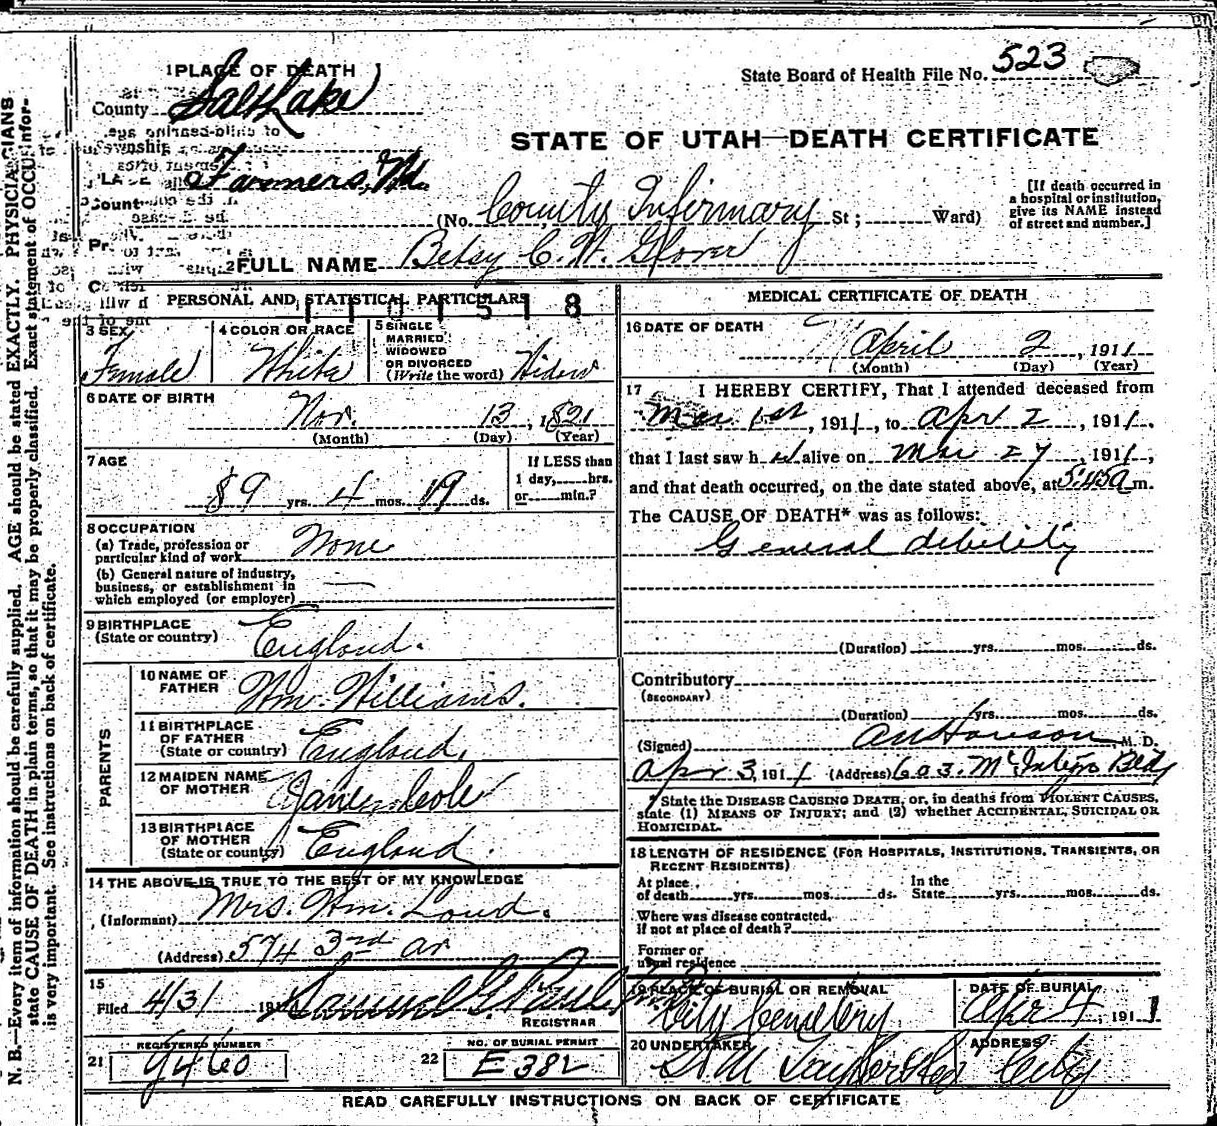 1 PLACE OF DEATH
State Board of Health File No. 523
County Salt Lake
STATE OF UTAH—DEATH CERTIFICATE
Township
Farmers, Wd.
[If death occurred in
a hospital or institution,
give its NAME instead
of street and number.]
(No. County Infirmary St; Ward)
2 FULL NAME Betsy C. W. Glover
PERSONAL AND STATISTICAL PARTICULARS
3 SEX
Female
4 COLOR OR RACE
White
5 SINGLE
MARRIED
WIDOWED
OR DIVORCED
(Write the word) Widow
6 DATE OF BIRTH
Nov. 13, 1821
(Month) (Day) (Year)
7 AGE
89 yrs. 4 mos. 19 ds.
If LESS than
1 day, hrs.
or min.?
8 OCCUPATION
(a) Trade, profession or
particular kind of work None
(b) General nature of industry,
business, or establishment in
which employed (or employer)
9 BIRTHPLACE
(State or country) England.
PARENTS
10 NAME OF
FATHER Wm. Williams.
11 BIRTHPLACE
OF FATHER
(State or country) England,
12 MAIDEN NAME
OF MOTHER Jane Cole
13 BIRTHPLACE
OF MOTHER
(State or country) England.
14 THE ABOVE IS TRUE TO THE BEST OF MY KNOWLEDGE
(Informant) Mrs. Wm. Loud.
(Address) 574 3rd av
15
Filed 4/3/ 191
REGISTRAR
REGISTERED NUMBER
21 9460
NO. OF BURIAL PERMIT
22 E 382
MEDICAL CERTIFICATE OF DEATH
16 DATE OF DEATH
April 2, 1911
(Month) (Day) (Year)
17 I HEREBY CERTIFY, That I attended deceased from
Mar. 1st, 1911, to Apr 2, 1911.
that I last saw h alive on Mar 27, 1911,
and that death occurred, on the date stated above, at 5:45 a m.
The CAUSE OF DEATH* was as follows:
General debility
(Duration) yrs. mos. ds.
Contributory
(SECONDARY)
(Duration) yrs. mos. ds.
(Signed) M. D.
Apr 3, 1911 (Address) 603. McIntyre Bldg
* State the DISEASE CAUSING DEATH, or, in deaths from VIOLENT CAUSES,
state (1) MEANS OF INJURY; and (2) whether ACCIDENTAL, SUICIDAL OR
HOMICIDAL.
18 LENGTH OF RESIDENCE (FOR HOSPITALS, INSTITUTIONS, TRANSIENTS, OR
RECENT RESIDENTS)
At place
of death yrs. mos. ds.
In the
State yrs. mos. ds.
Where was disease contracted,
if not at place of death?
Former or
usual residence
19 PLACE OF BURIAL OR REMOVAL
City Cemetery
DATE OF BURIAL
Apr 4, 1911
20 UNDERTAKER
S. M. Taylor & Co
ADDRESS
City
READ CAREFULLY INSTRUCTIONS ON BACK OF CERTIFICATE
N. B.—Every item of information should be carefully supplied. AGE should be stated EXACTLY. PHYSICIANS
state CAUSE OF DEATH in plain terms, so that it may be properly classified. Exact statement of OCCUPATION
is very important. See instructions on back of certificate.